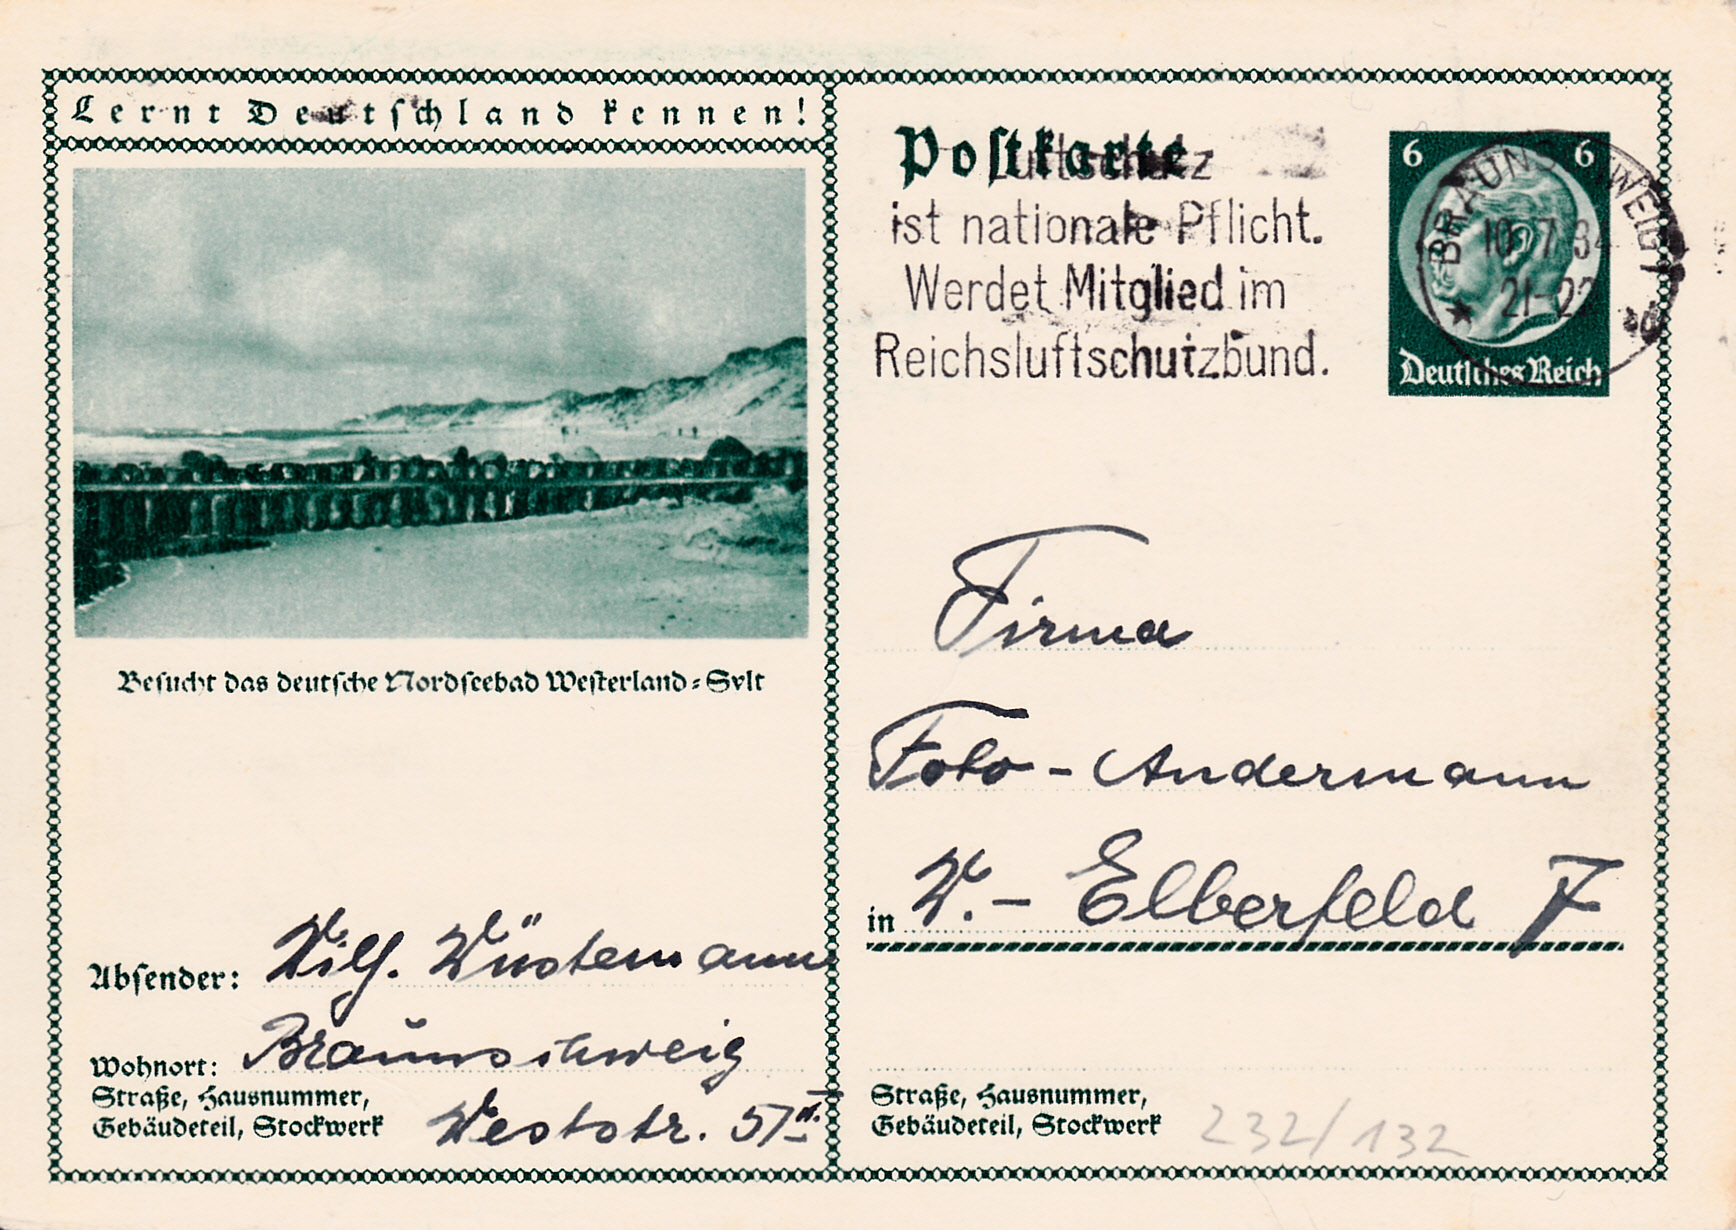 Lernt Deutschland kennen!
Besucht das deutsche Nordseebad Westerland-Sylt
Absender: Wilh. Wüstemann
Wohnort: Braunschweig
Straße, Hausnummer,
Gebäudeteil, Stockwerk
Weststr. 57 II.
Postkarte
Luftschutz
ist nationale Pflicht.
Werdet Mitglied im
Reichsluftschutzbund.
6 6
Deutsches Reich
BRAUNSCHWEIG 1
10.7.34
21-22
Firma
Foto-Andermann
in W.- Elberfeld
Straße, Hausnummer,
Gebäudeteil, Stockwerk
232/132